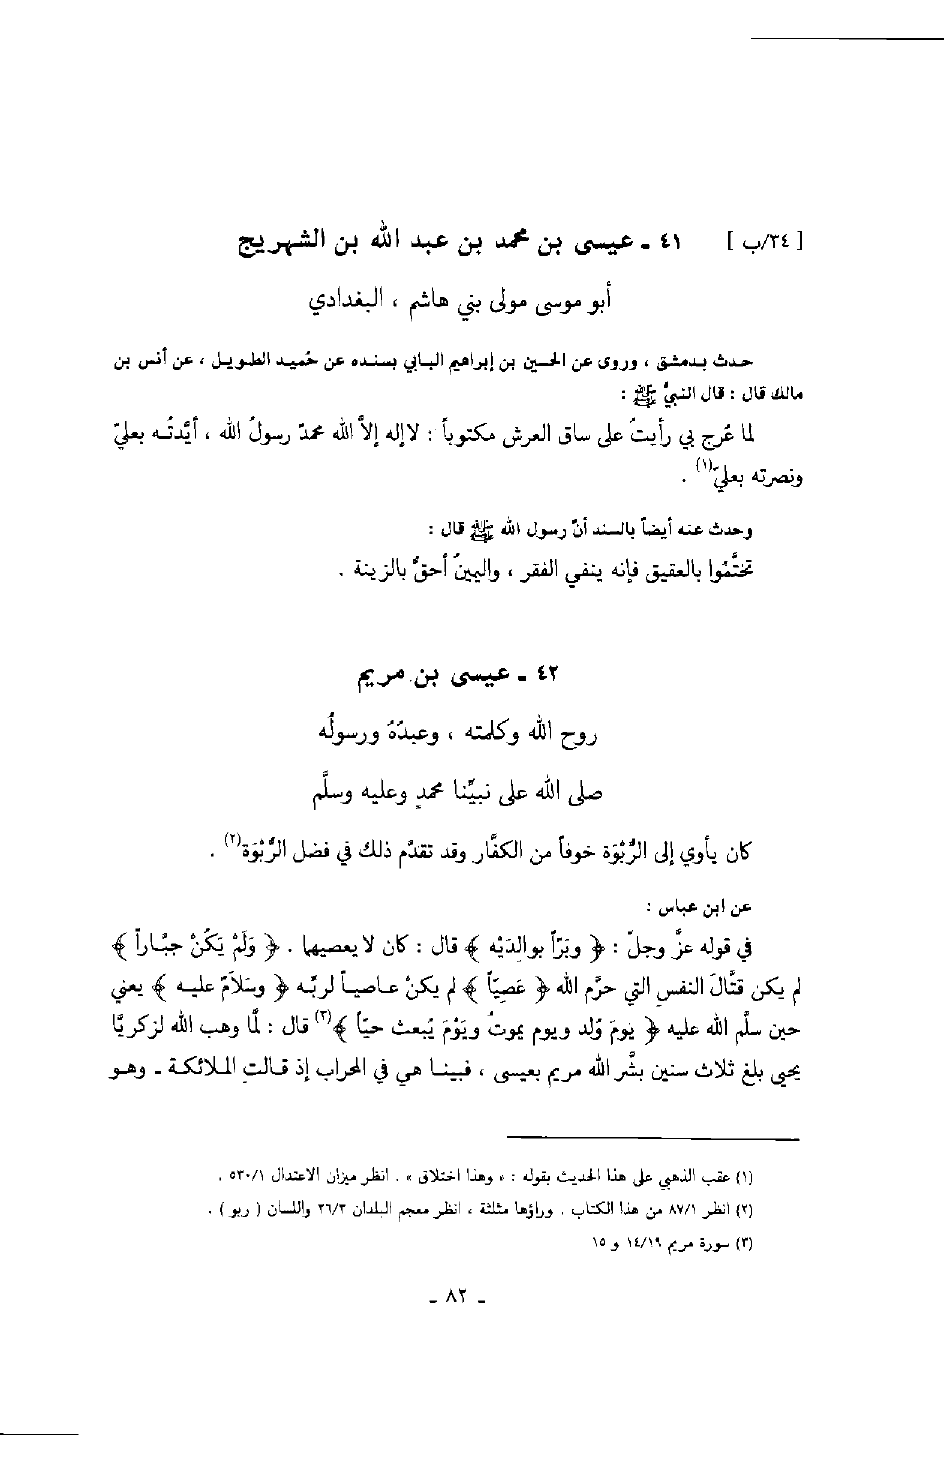 [ ٣٤/ب ] ٤١ ـ عيسى بن محمد بن عبد الله بن الشهريج
أبو موسى مولى بني هاشم ، البغدادي
حدث بدمشق ، وروى عن الحسين بن إبراهيم البابي بسنده عن حُميد الطويل ، عن أنس بن
مالك قال : قال النبيُّ ﷺ :
لما عُرج بي رأيتُ على ساق العرش مكتوباً : لاإله إلاَّ الله محمدٌ رسولُ الله ، أيَّدتُه بعليّ
ونصرته بعليّ(١) .
وحدث عنه أيضاً بالسند أنّ رسول الله ﷺ قال :
تختَّمُوا بالعقيق فإنه ينفي الفقر ، واليمينُ أحقُّ بالزينة .
٤٢ ـ عيسى بن مريم
روح الله وكلمته ، وعبدُهُ ورسولُه
صلى الله على نبيِّنا محمدٍ وعليه وسلَّم
كان يأوي إلى الرُّبْوَة خوفاً من الكفَّار وقد تقدَّم ذلك في فضل الرُّبْوَة(٢) .
عن ابن عباس :
في قوله عزَّ وجلّ : ﴿ وبَرّاً بوالِدَيْه ﴾ قال : كان لا يعصيها . ﴿ وَلَمْ يَكُنْ جبَّاراً ﴾
لم يكن قتَّالَ النفسِ التي حرَّم الله ﴿ عَصِيّاً ﴾ لم يكنْ عاصياً لربِّه ﴿ وسَلاَمٌ عليه ﴾ يعني
حين سلَّم الله عليه ﴿ يومَ وُلد ويوم يموتُ ويَوْمَ يُبعث حيّاً ﴾(٣) قال : لمَّا وهب الله لزكريَّا
يحيى بلغ ثلاث سنين بشَّر الله مريم بعيسى ، فبينا هي في المحراب إذ قالتِ الملائكة ـ وهو
(١) عقب الذهبي على هذا الحديث بقوله : « وهذا اختلاق » . انظر ميزان الاعتدال ٥٣٠/١ .
(٢) انظر ٨٧/١ من هذا الكتاب . وراؤها مثلثة ، انظر معجم البلدان ٢٦/٣ واللسان ( ربو ) .
(٣) سورة مريم ١٤/١٩ و ١٥
ـ ٨٢ ـ